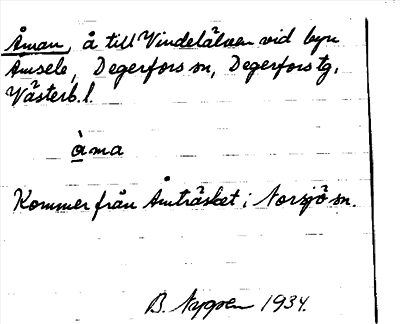 Åman, å till Vindelälven vid byn
Åmsele, Degerfors sn, Degerfors tg,
Västerb. l.
å̀ma
Kommer från Åmträsket i Norsjö sn.
B. Nygren 1934.